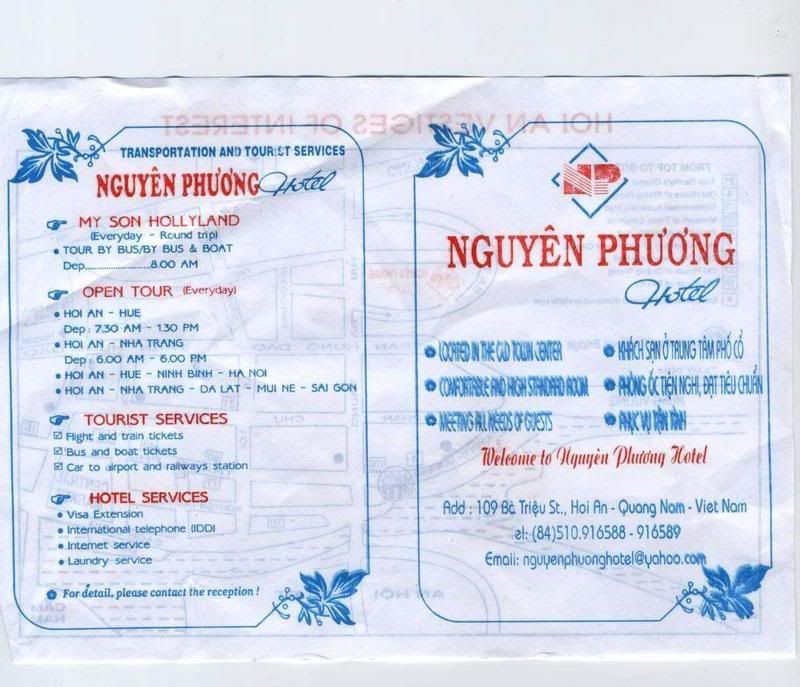 TRANSPORTATION AND TOURIST SERVICES
NGUYÊN PHƯƠNG Hotel
MY SON HOLLYLAND
(Everyday - Round trip)
• TOUR BY BUS/BY BUS & BOAT
Dep........................8.00 AM
OPEN TOUR (Everyday)
• HOI AN - HUE
Dep : 7.30 AM - 1.30 PM
• HOI AN - NHA TRANG
Dep : 6.00 AM - 6.00 PM
• HOI AN - HUE - NINH BINH - HA NOI
• HOI AN - NHA TRANG - DA LAT - MUI NE - SAI GON
TOURIST SERVICES
☑ Flight and train tickets
☑ Bus and boat tickets
☑ Car to airport and railways station
HOTEL SERVICES
• Visa Extension
• International telephone (IDD)
• Internet service
• Laundry service
For detail, please contact the reception !
NP
NGUYÊN PHƯƠNG
Hotel
LOCATED IN THE OLD TOWN CENTER
COMFORTABLE AND HIGH STANDARD ROOM
MEETING ALL NEEDS OF GUESTS
KHÁCH SẠN Ở TRUNG TÂM PHỐ CỔ
PHÒNG ỐC TIỆN NGHI, ĐẠT TIÊU CHUẨN
PHỤC VỤ TẬN TÌNH
Welcome to Nguyên Phương Hotel
Add : 109 Bà Triệu St., Hoi An - Quang Nam - Viet Nam
el: (84)510.916588 - 916589
Email: nguyenphuonghotel@yahoo.com
HOI AN VESTIGES OF INTEREST
FROM TOP TO BO
AN HỘI